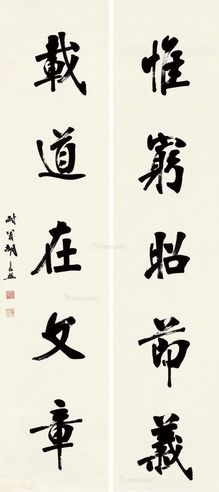 惟窮昭節義
載道在文章